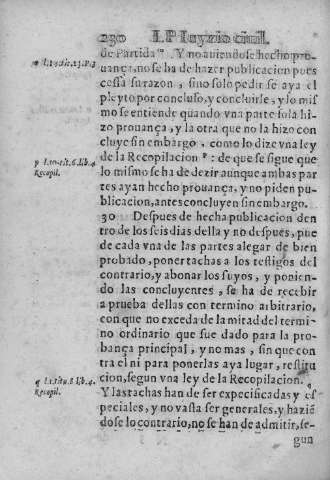 230 I.P. Iuyzio ciuil.
de Partida º. Y no auiendose hecho pro-
uança, no se ha de hazer publicacion pues
cessa su razon, sino solo pedir se aya el
pleyto por concluso, y concluirle, y lo mis
mo se entiende quando vna parte sola hi-
zo prouança, y la otra que no la hizo con
cluye sin embargo, como lo dize vna ley
de la Recopilacion p: de que se sigue que
lo mismo se ha de dezir aunque ambas par
tes ayan hecho prouança, y no piden pu-
blicacion, antes concluyen sin embargo.
30 Despues de hecha publicacion den
tro de los seis dias della y no despues, pue
de cada vna de las partes alegar de bien
probado, poner tachas a los testigos del
contrario, y abonar los suyos, y ponien-
do las concluyentes, se ha de recebir
a prueba dellas con termino arbitrario,
con que no exceda de la mitad del termi-
no ordinario que fue dado para la pro-
bança principal, y no mas, sin que con
tra el ni para ponerlas aya lugar, restitu
cion, segun vna ley de la Recopilacion. q
Y las tachas han de ser expecificadas y es
peciales, y no vasta ser generales, y hazié
dose lo contrario, no se han de admitir, se-
gun
p l.10.tit.6.lib.4.
Recopil.
q l.1.titu.8.lib.4.
Recopil.